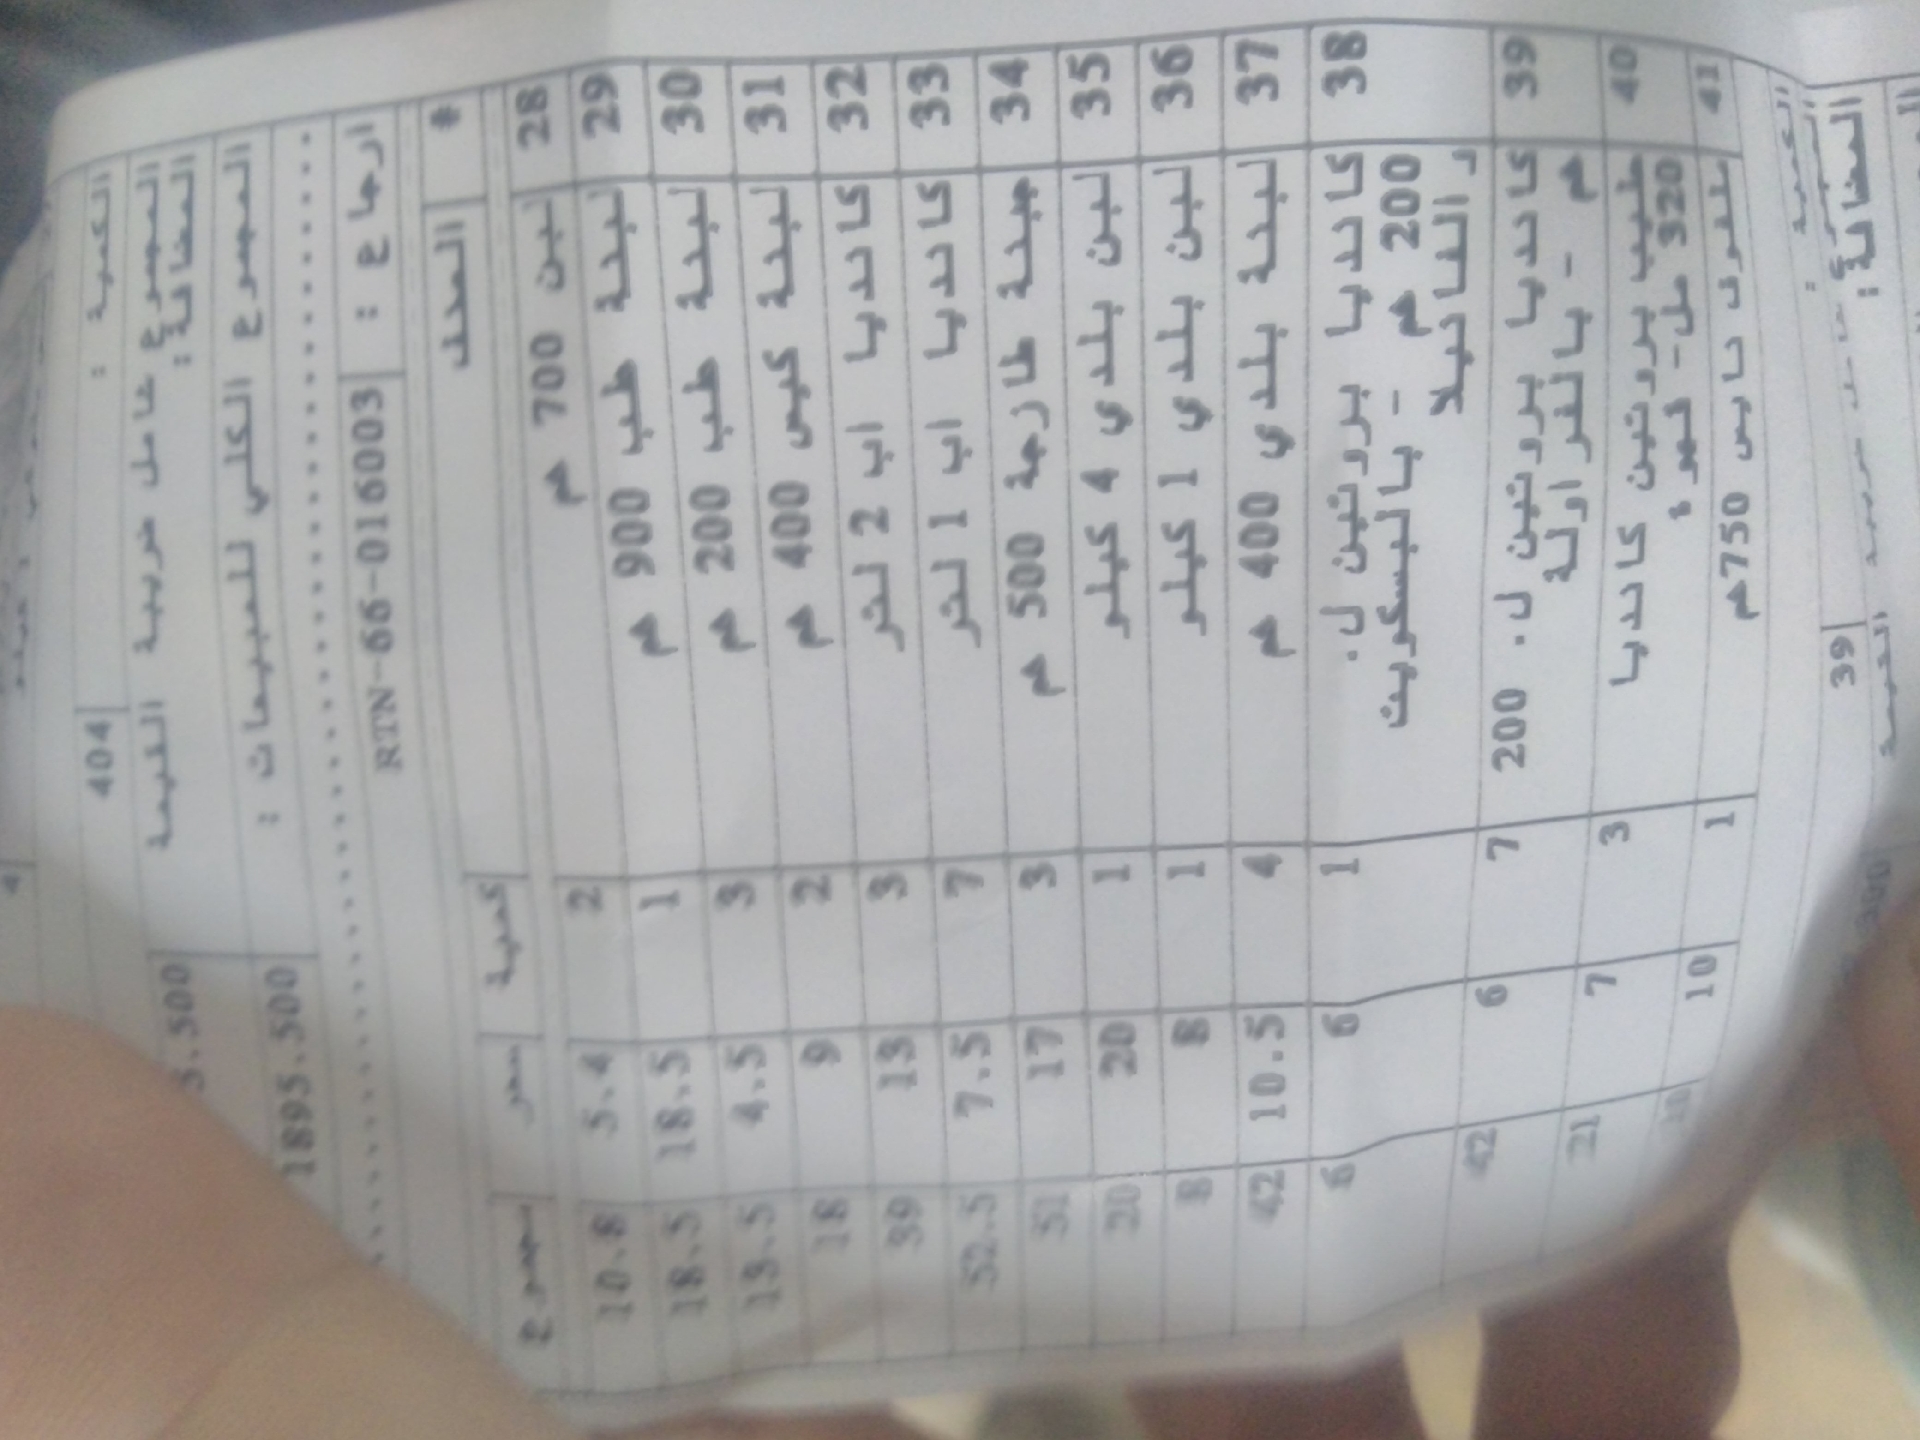 الكمية : 404
المجموع شامل ضريبة القيمة المضافة : 5.500
المجموع الكلي للمبيعات : 1895.500
ارجاع : RTN-66-016003
# الصنف كمية سعر مجموع
28 لبن 700 م 2 5.4 10.8
29 لبنة طب 900 م 1 18.5 18.5
30 لبنة طب 200 م 3 4.5 13.5
31 لبنة كيس 400 م 2 9 18
32 كانديا اب 2 لتر 3 13 39
33 كانديا اب 1 لتر 7 7.5 52.5
34 جبنة طازجة 500 م 3 17 51
35 لبن بلدي 4 كيلو 1 20 20
36 لبن بلدي 1 كيلو 1 8 8
37 لبنة بلدي 400 م 4 10.5 42
38 كانديا بروتين ل.
200 م - بالبسكويت
و الفانيلا 1 6 6
39 كانديا بروتين ل. 200
م - بالفراولة 7 6 42
40 حليب بروتين كانديا
320 مل- قهوة 3 7 21
41 نابس 750م 1 10 10
الكمية : 39
المضافة :
القيمة